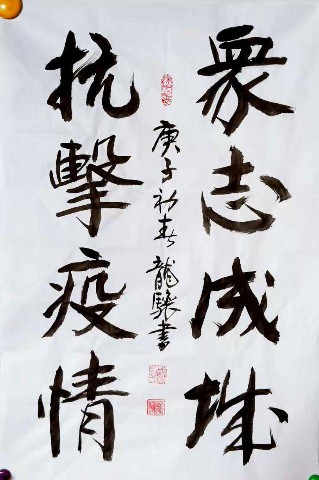 衆志成城
抗擊疫情
庚子初春龍驤書